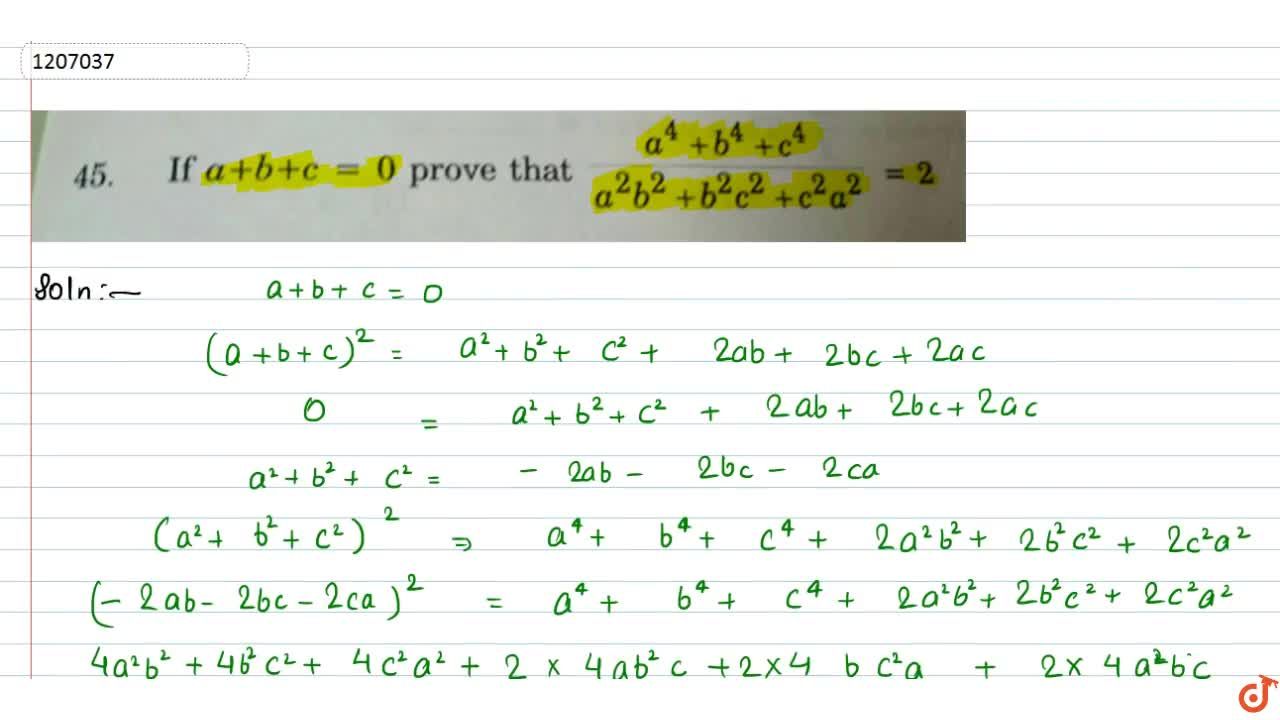 1207037
45. If a+b+c = 0 prove that (a⁴ +b⁴ +c⁴)/(a²b² +b²c² +c²a²) = 2
Soln:— a+b+ c = 0
(a +b+ c)² = a²+ b²+ c² + 2ab+ 2bc + 2ac
0 = a²+ b²+ c² + 2ab+ 2bc+ 2ac
a²+ b²+ c² = - 2ab - 2bc - 2ca
(a²+ b²+ c²)² ⇒ a⁴+ b⁴+ c⁴+ 2a²b²+ 2b²c² + 2c²a²
(- 2ab- 2bc- 2ca)² = a⁴+ b⁴+ c⁴+ 2a²b²+ 2b²c²+ 2c²a²
4a²b² + 4b²c²+ 4c²a² + 2 × 4ab²c +2×4 bc²a + 2× 4a²bc